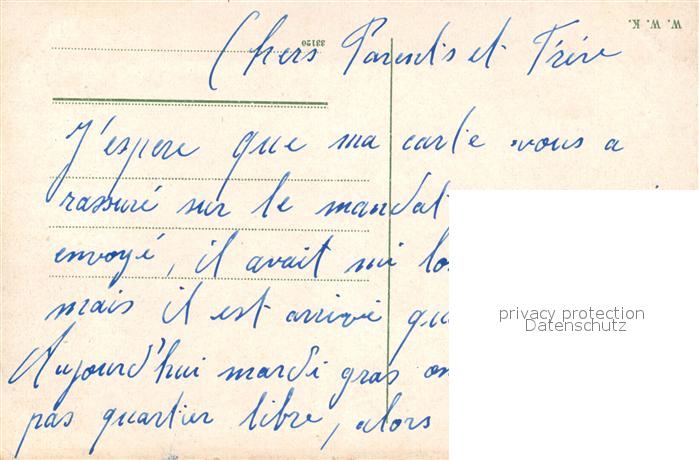 W. W. K.
33120
Chers Parents et Frère
J'espere que ma carte vous a
rassuré sur le mandat
envoyé, il avait mi lo
mais il est arrivé qu
Aujourd'hui mardi gras on
pas quartier libre, alors
privacy protection
Datenschutz